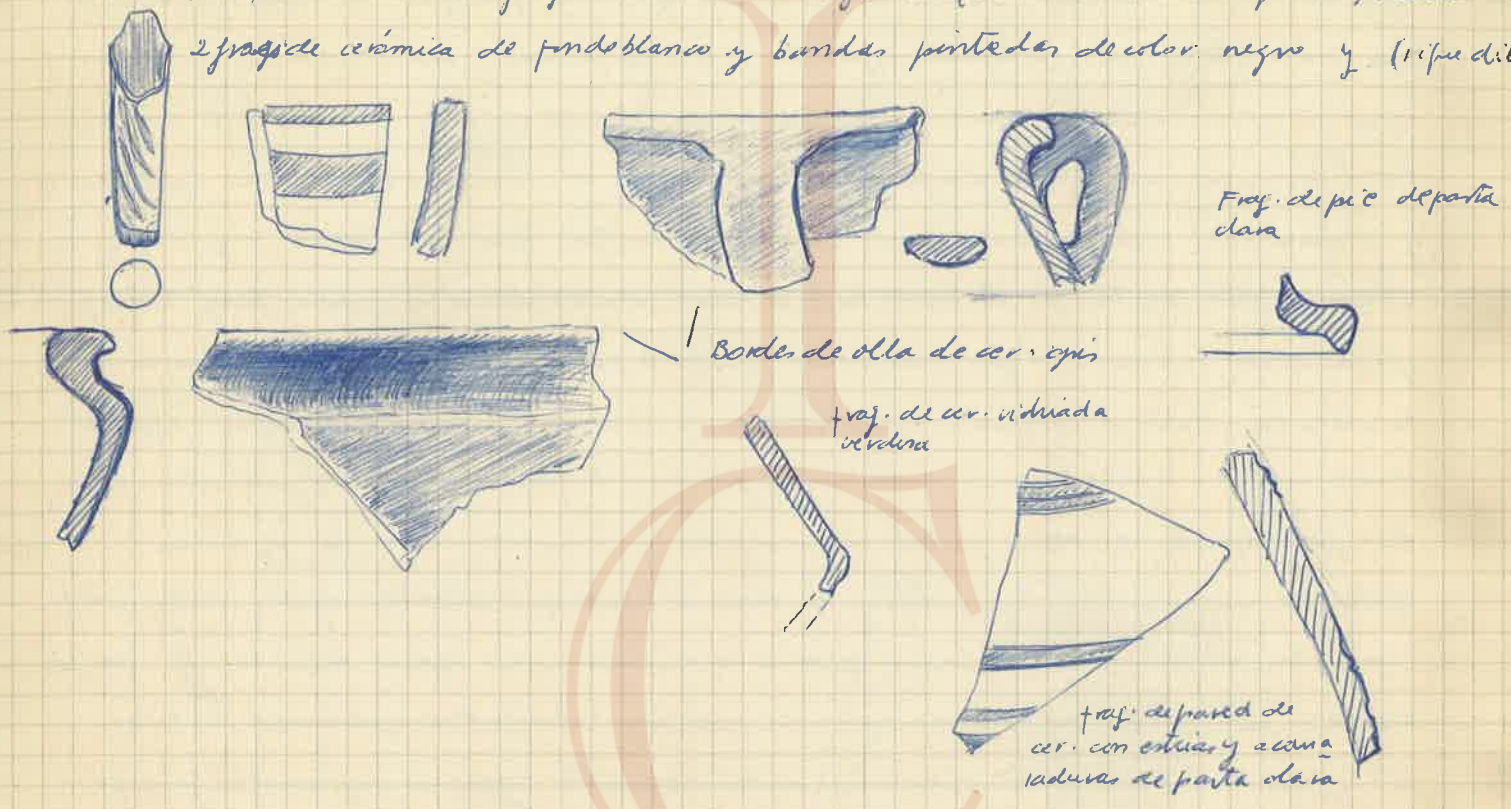 2 frags de cerámica de fondo blanco y bandas pintadas de color negro y
Frag. de pie de pasta
clara
Bordes de olla de cer. gris
frag. de cer. vidriada
verdosa
frag. de pared de
cer. con estrias y acana
laduras de pasta clara